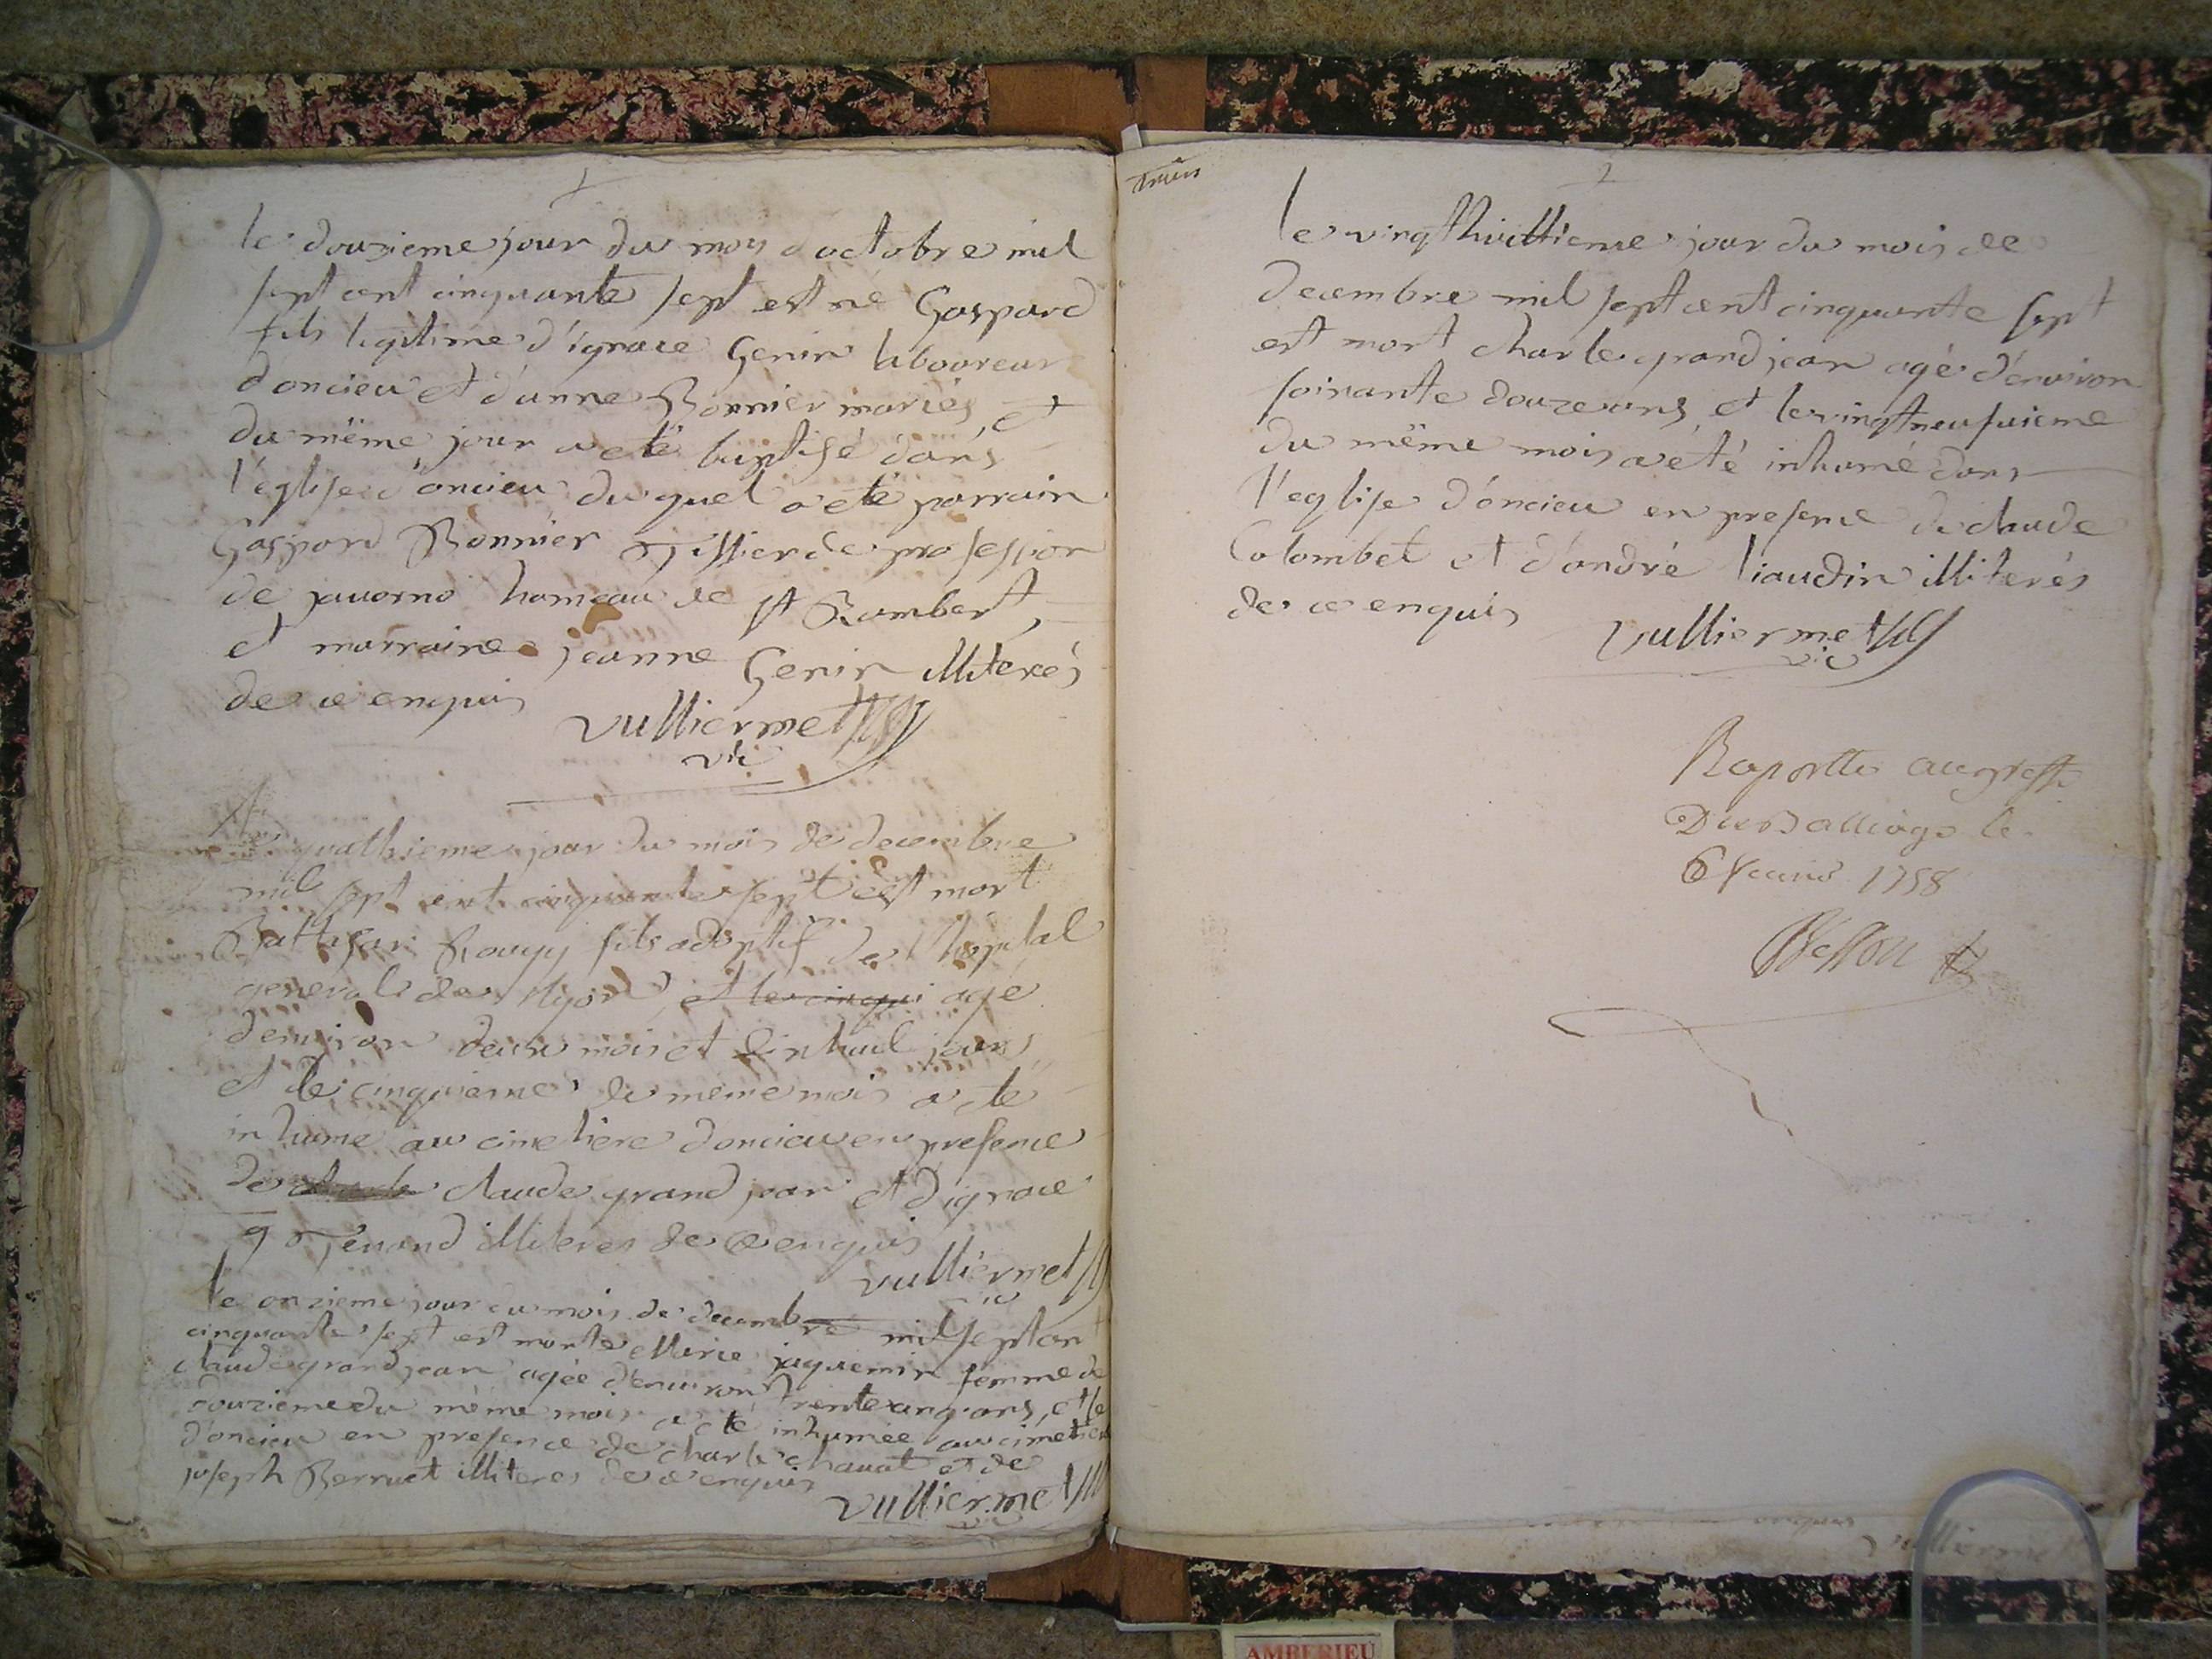 1
le douzieme jour du moy d'octobre mil
sept cent cinquante sept est né Gaspard
fils legitime d'ignace Genin laboureur
d'oncieu et d'anne Bonnier mariés, et
du même jour a eté baptisé dans
l'église d'oncieu du quel a eté parrain
Gaspard Bonnier Tissier de profession
de javornö hameau de st Rambert,
et marraine jeanne Genin illiterés
de ce enquis
vulliermet
vic
Le quatrieme jour du mois de decembre
mil sept cent cinquante sept est mort
Baltasar Rougy fils adoptif de l'hopital
general de et le cinqui agé
denviron deux mois et jours
et le cinquieme du meme mois a eté
inhumé au cimetiere d'oncieu en presence
de claude grand jean et d'ignace
Tenand illiteres de ce enquis
vulliermet
vic
le onzieme jour du mois de decembre mil sept cent
cinquante sept est morte Marie jaquemin femme de
claude grand jean agée d'environ trente cinq ans, et le
douzieme du même mois a eté inhumée au cimetiere
d'oncieu en presence de charle chavat et de
joseph Berruet illiteres de ce enquis
vulliermet
vic
2
le vingt huittieme jour du mois de
decembre mil sept cent cinquante sept
est mort charle grand jean agé d'environ
soixante douze ans, et le vingt neufvieme
du même mois a été inhumé dans
l'eglise d'oncieu en presence de claude
Colombet et d'andré liaudin illiterés
de ce enquis
vulliermet
vic
Raportté au greffe
Du Balliage le
6 1758
Besson
AMBERIEU